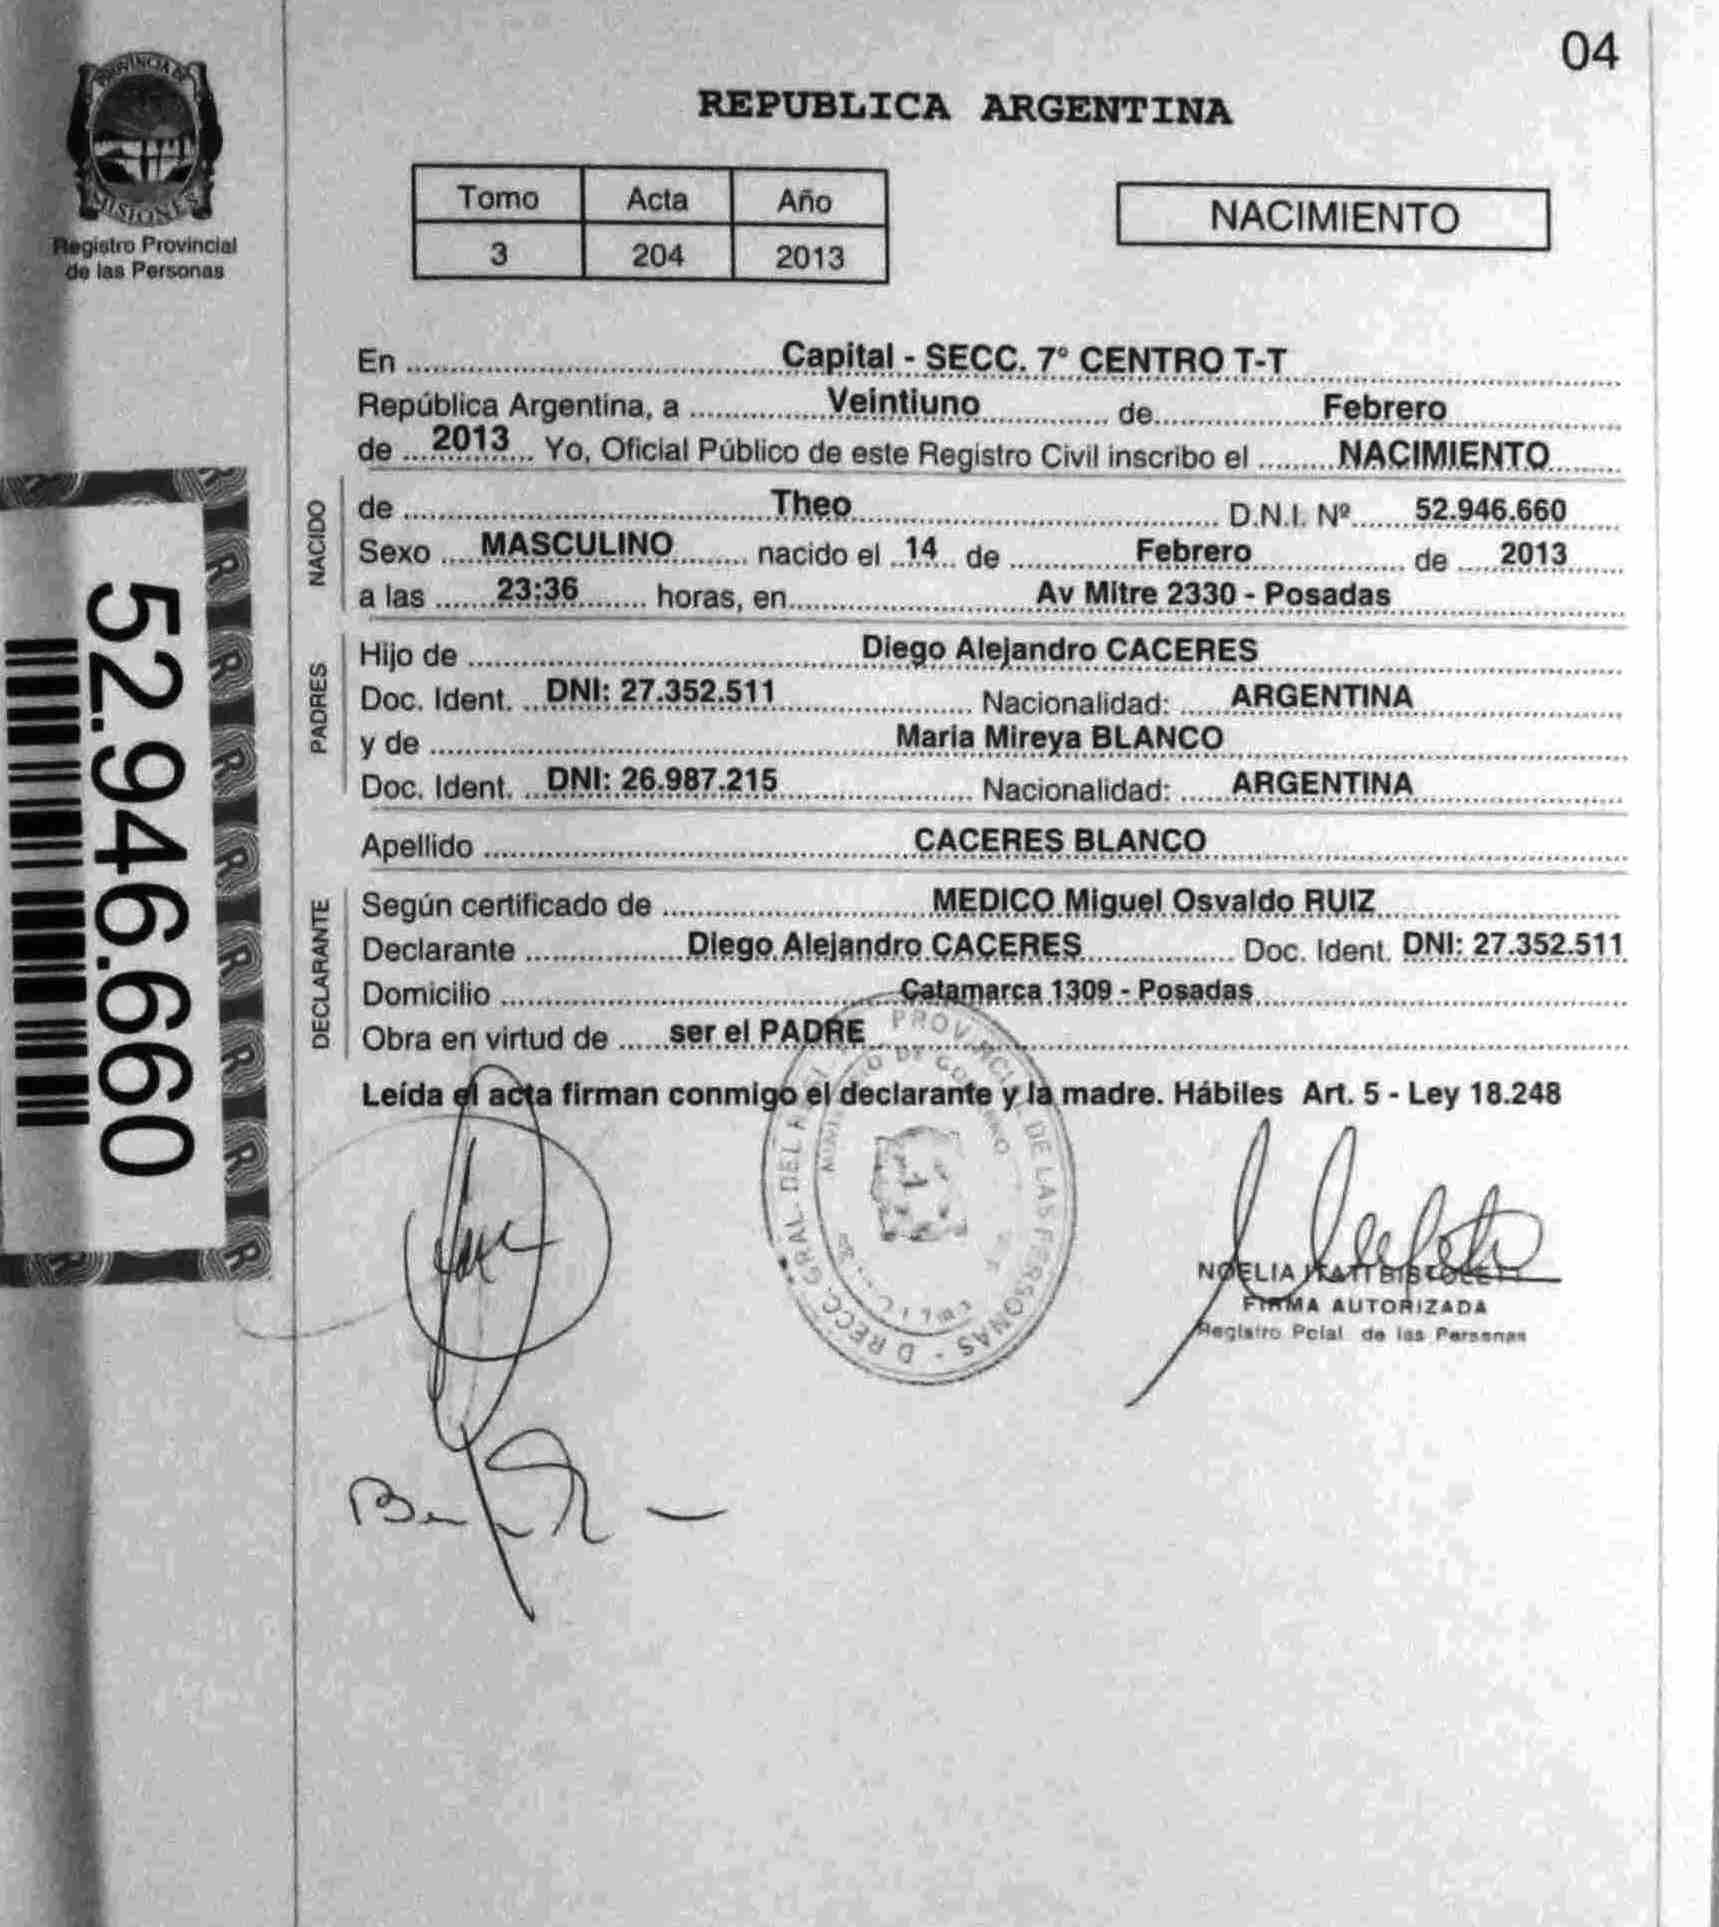 04
PROVINCIA DE
MISIONES
Registro Provincial
de las Personas
REPUBLICA ARGENTINA
Tomo Acta Año
3 204 2013
NACIMIENTO
En Capital - SECC. 7° CENTRO T-T
República Argentina, a Veintiuno de Febrero
de 2013 Yo, Oficial Público de este Registro Civil inscribo el NACIMIENTO
NACIDO
de Theo D.N.I. Nº 52.946.660
Sexo MASCULINO nacido el 14 de Febrero de 2013
a las 23:36 horas, en Av Mitre 2330 - Posadas
PADRES
Hijo de Diego Alejandro CACERES
Doc. Ident. DNI: 27.352.511 Nacionalidad: ARGENTINA
y de Maria Mireya BLANCO
Doc. Ident. DNI: 26.987.215 Nacionalidad: ARGENTINA
Apellido CACERES BLANCO
DECLARANTE
Según certificado de MEDICO Miguel Osvaldo RUIZ
Declarante Diego Alejandro CACERES Doc. Ident. DNI: 27.352.511
Domicilio Catamarca 1309 - Posadas
Obra en virtud de ser el PADRE
Leída el acta firman conmigo el declarante y la madre. Hábiles Art. 5 - Ley 18.248
52.946.660
PROVINCIAL DE LAS PERSONAS
GRAL. DEL
DE GOBIERNO
NOELIA ITATI
FIRMA AUTORIZADA
Registro Pcial de las Personas